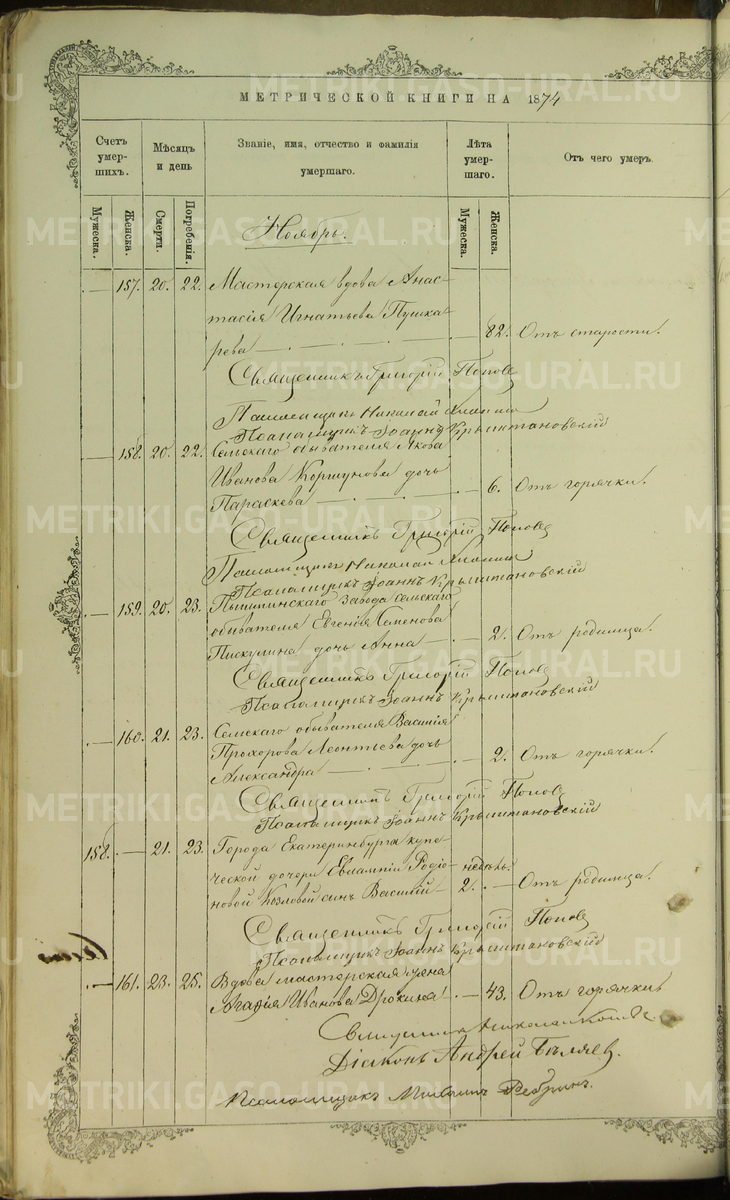 МЕТРИЧЕСКОЙ КНИГИ НА 1874
Счетъ умер- шихъ.
Мѣсяцъ и день
Званіе, имя, отчество и фамилія умершаго.
Лѣта умер- шаго.
Отъ чего умеръ.
Мужеска. Женска. Смерти. Погребенія. Мужеска. Женска.
Ноябрь.
— 157. 20. 22. Мастерская вдова Анас-
тасія Игнатьева Пушка-
рева — — 82. Отъ старости.
Священникъ Григорій Поповъ
Николай
Псаломщикъ Іоаннъ Крыжановскій
— 158. 20. 22. Сельскаго обывателя Якова
Иванова Коршунова дочь
Параскева — — 6. Отъ горячки.
Священникъ Григорій Поповъ
Николай
Псаломщикъ Іоаннъ Крыжановскій
— 159. 20. 23. Пышминскаго завода сельскаго
обывателя Евгенія Семенова
Пискулина дочь Анна — — 2. Отъ родимца.
Священникъ Григорій Поповъ
Псаломщикъ Іоаннъ Крыжановскій
— 160. 21. 23. Сельскаго обывателя Василія
Прохорова Леонтьева дочь
Александра — — 2. Отъ горячки.
Священникъ Григорій Поповъ
Псаломщикъ Іоаннъ Крыжановскій
158. — 21. 23. Города Екатеринбурга купе-
ческой дочери Евлампіи Родіо- недѣль.
новой Козловой сынъ Василій — 2. — Отъ родимца.
Священникъ Григорій Поповъ
Псаломщикъ Іоаннъ Крыжановскій
— 161. 23. 25. Вдова мастерская жена
Агафія Иванова Дрокина — 43. Отъ горячки
Священникъ Николай
Діаконъ Андрей Бѣляев.
Псаломщикъ
METRIKI.GASO-URAL.RU